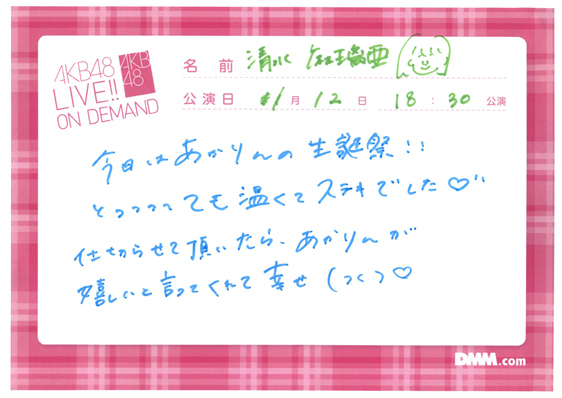 AKB48
LIVE!!
ON DEMAND
AKB
48
名 前 清水 麻璃亜
公演日 11月 12日 18:30 公演
今日はあかりんの生誕祭!!
とっっっっても温くてステキでした♡"
仕切らせて頂いたら、あかりんが
嬉しいと言ってくれて幸せ(つくっ)♡
DMM.com